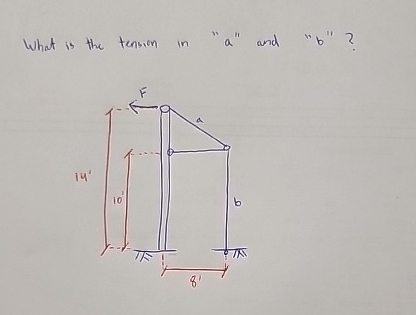 What is the tension in "a" and "b" ?
F
a
14'
10'
b
8'